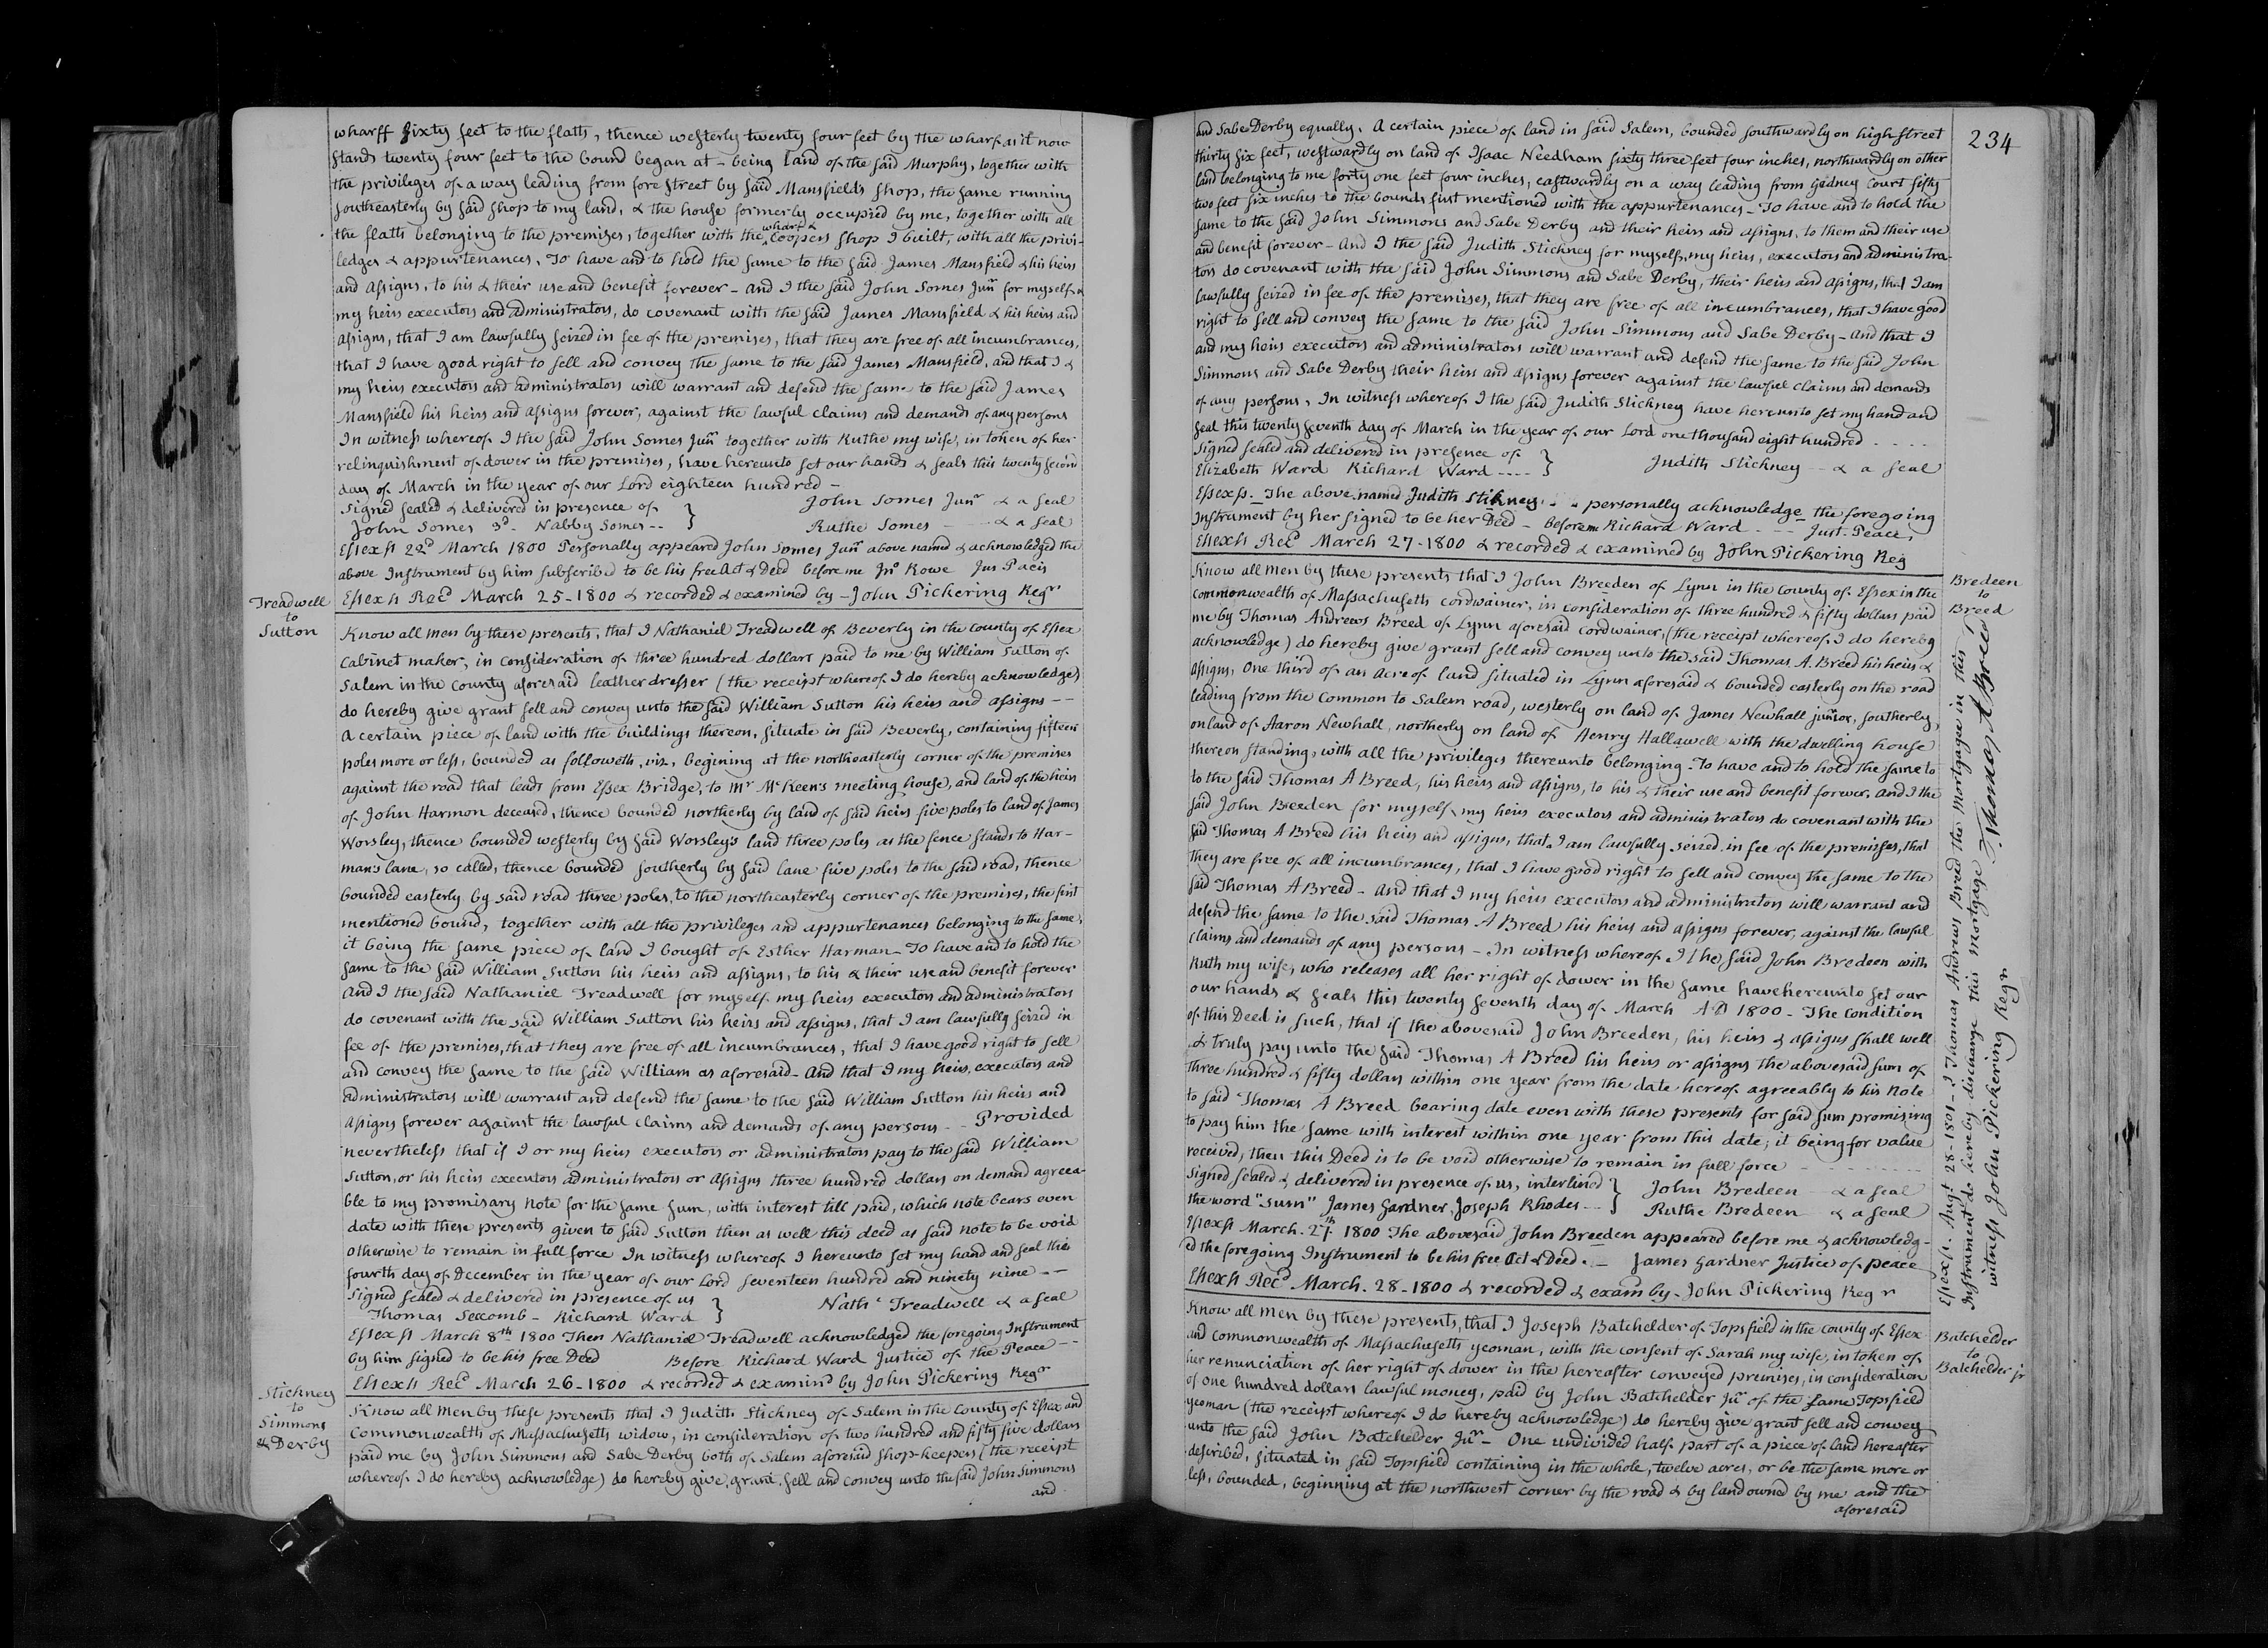 wharff sixty feet to the flatts, thence westerly twenty four feet by the wharf as it now
stands twenty four feet to the bound began at - being land of the said Murphy, together with
the privileges of a way leading from fore street by said Mansfields shop, the same running
southeasterly by said shop to my land, & the house formerly occupied by me, together with all
the flatts belonging to the premises, together with the wharf & Coopers shop I built, with all the privi-
ledges & appurtenances, To have and to hold the same to the said James Mansfield & his heirs
and assigns, to his & their use and benefit forever - And I the said John Somes Junr for myself &
my heirs executors and administrators, do covenant with the said James Mansfield & his heirs and
assigns, that I am lawfully seized in fee of the premises, that they are free of all incumbrances,
that I have good right to sell and convey the same to the said James Mansfield, and that I &
my heirs executors and administrators will warrant and defend the same to the said James
Mansfield his heirs and assigns forever, against the lawful claims and demands of any persons
In witness whereof I the said John Somes Junr together with Ruthe my wife, in token of her
relinquishment of dower in the premises, have hereunto set our hands & seals this twenty second
day of March in the year of our Lord eighteen hundred -
Signed sealed & delivered in presence of } John Somes Junr & a seal
John Somes 3d - Nabby Somes -- } Ruthe Somes - & a seal
Essex ss 22d March 1800 Personally appeared John Somes Junr above named & acknowledged the
above Instrument by him subscribed to be his free Act & Deed before me Jno Rowe Jus Pacis
Essex ss Recd March 25 - 1800 & recorded & examined by - John Pickering Regr
Treadwell
to
Sutton
Know all men by these presents, that I Nathaniel Treadwell of Beverly in the County of Essex
Cabinet maker, in consideration of three hundred dollars paid to me by William Sutton of
Salem in the County aforesaid leather dresser (the receipt whereof I do hereby acknowledge)
do hereby give grant sell and convey unto the said William Sutton his heirs and assigns --
A certain piece of land with the buildings thereon, situate in said Beverly, containing fifteen
poles more or less, bounded as followeth, viz, begining at the northeasterly corner of the premises
against the road that leads from Essex Bridge, to Mr McKeen's meeting house, and land of the heirs
of John Harmon deceased, thence bounded northerly by land of said heirs five poles to land of James
Worsley, thence bounded westerly by said Worsley's land three poles as the fence stands to Har-
man's lane, so called, thence bounded southerly by said lane five poles to the said road, thence
bounded easterly by said road three poles, to the northeasterly corner of the premises, the first
mentioned bound, together with all the privileges and appurtenances belonging to the same,
it being the same piece of land I bought of Esther Harman - To have and to hold the
same to the said William Sutton his heirs and assigns, to his & their use and benefit forever
And I the said Nathaniel Treadwell for myself my heirs executors and administrators
do covenant with the said William Sutton his heirs and assigns, that I am lawfully seized in
fee of the premises, that they are free of all incumbrances, that I have good right to sell
and convey the same to the said William as aforesaid - And that I my heirs, executors and
administrators will warrant and defend the same to the said William Sutton his heirs and
assigns forever against the lawful claims and demands of any persons -- Provided
nevertheless that if I or my heirs executors or administrators pay to the said William
Sutton, or his heirs executors administrators or assigns three hundred dollars on demand agreea-
ble to my promisary Note for the same sum, with interest till paid, which note bears even
date with these presents given to said Sutton then as well this deed as said note to be void
otherwise to remain in full force In witness whereof I hereunto set my hand and seal this
fourth day of December in the year of our Lord seventeen hundred and ninety nine --
Signed sealed & delivered in presence of us }
Thomas Seccomb - Richard Ward } Nathl Treadwell & a seal
Essex ss March 8th 1800 Then Nathaniel Treadwell acknowledged the foregoing Instrument
by him signed to be his free Deed Before Richard Ward Justice of the Peace --
Essex ss Recd March 26 - 1800 & recorded & examin'd by John Pickering Regr
Stickney
to
Simmons
& Derby
Know all Men by these presents that I Judith Stickney of Salem in the County of Essex and
Commonwealth of Massachusetts widow, in consideration of two hundred and fifty five dollars
paid me by John Simmons and Sabe Derby both of Salem aforesaid shop-keepers (the receipt
whereof I do hereby acknowledge) do hereby give, grant, sell and convey unto the said John Simmons
and
234
and Sabe Derby equally, A certain piece of land in said Salem, bounded southwardly on high street
thirty six feet, westwardly on land of Isaac Needham sixty three feet four inches, northwardly on other
land belonging to me forty one feet four inches, eastwardly on a way leading from Gedney Court fifty
two feet six inches to the bounds first mentioned with the appurtenances - To have and to hold the
same to the said John Simmons and Sabe Derby and their heirs and assigns, to them and their use
and benefit forever - And I the said Judith Stickney for myself, my heirs, executors and administra-
tors do covenant with the said John Simmons and Sabe Derby, their heirs and assigns, that I am
lawfully seized in fee of the premises, that they are free of all incumbrances, that I have good
right to sell and convey the same to the said John Simmons and Sabe Derby - And that I
and my heirs executors and administrators will warrant and defend the same to the said John
Simmons and Sabe Derby their heirs and assigns forever against the lawful claims and demands
of any persons, In witness whereof I the said Judith Stickney have hereunto set my hand and
seal this twenty seventh day of March in the year of our Lord one thousand eight hundred ----
Signed sealed and delivered in presence of }
Elizabeth Ward Richard Ward ---- } Judith Stickney -- & a seal
Essex ss - The above named Judith Stickney personally acknowledge the foregoing
Instrument by her signed to be her Deed - before me Richard Ward --- Just. Peace,
Essex ss Recd March 27 - 1800 & recorded & examined by John Pickering Reg
Bredeen
to
Breed
Know all men by these presents that I John Breeden of Lynn in the County of Essex in the
commonwealth of Massachusetts cordwainer, in consideration of three hundred & fifty dollars paid
me by Thomas Andrews Breed of Lynn aforesaid cordwainer, (the receipt whereof I do hereby
acknowledge) do hereby give grant sell and convey unto the said Thomas A. Breed his heirs &
assigns, One third of an Acre of land situated in Lynn aforesaid & bounded easterly on the road
leading from the Common to Salem road, westerly on land of James Newhall junior, southerly,
on land of Aaron Newhall, northerly on land of Henry Hallawell with the dwelling house
thereon standing, with all the privileges thereunto belonging - To have and to hold the same to
to the said Thomas A Breed, his heirs and assigns, to his & their use and benefit forever. And I the
said John Breeden for myself, my heirs executors and administrators do covenant with the
said Thomas A Breed his heirs and assigns, that I am lawfully seized in fee of the premises, that
they are free of all incumbrances, that I have good right to sell and convey the same to the
said Thomas A Breed - And that I my heirs executors and administrators will warrant and
defend the same to the said Thomas A Breed his heirs and assigns forever, against the lawful
claims and demands of any persons - In witness whereof I the said John Bredeen with
Ruth my wife, who releases all her right of dower in the same have hereunto set our
our hands & seals this twenty seventh day of March AD 1800 - The Condition
of this Deed is such, that if the abovesaid John Breeden, his heirs & assigns shall well
& truly pay unto the said Thomas A Breed his heirs or assigns the abovesaid sum of
three hundred & fifty dollars within one year from the date hereof agreeably to his Note
to said Thomas A Breed bearing date even with these presents for said sum promising
to pay him the same with interest within one year from this date, it being for value
received, then this Deed is to be void otherwise to remain in full force
Signed sealed & delivered in presence of us, interlined } John Bredeen & a seal
the word "sum" James Gardner, Joseph Rhodes -- } Ruthe Bredeen & a seal
Essex ss March. 27th 1800 The abovesaid John Breeden appeared before me & acknowledg-
ed the foregoing Instrument to be his free Act & Deed. - James Gardner Justice of peace
Essex ss Recd March. 28 - 1800 & recorded & exam by - John Pickering Regr
Essex ss. Augt 28 - 1801 - I Thomas Andrews Breed the Mortgagee in this
Instrument do hereby discharge this Mortgage Thomas A Breed
witness John Pickering Regr
Batchelder
to
Batchelder jr
Know all men by these presents, that I Joseph Batchelder of Topsfield in the County of Essex
and Commonwealth of Massachusetts yeoman, with the consent of Sarah my wife, in token of
her renunciation of her right of dower in the hereafter conveyed premises, in consideration
of one hundred dollars lawful money, paid by John Batchelder Jur of the same Topsfield
yeoman (the receipt whereof I do hereby acknowledge) do hereby give grant sell and convey
unto the said John Batchelder Jur - One undivided half part of a piece of land hereafter
described, situated in said Topsfield containing in the whole, twelve acres, or be the same more or
less, bounded, beginning at the northwest corner by the road & by land owned by me and the
aforesaid